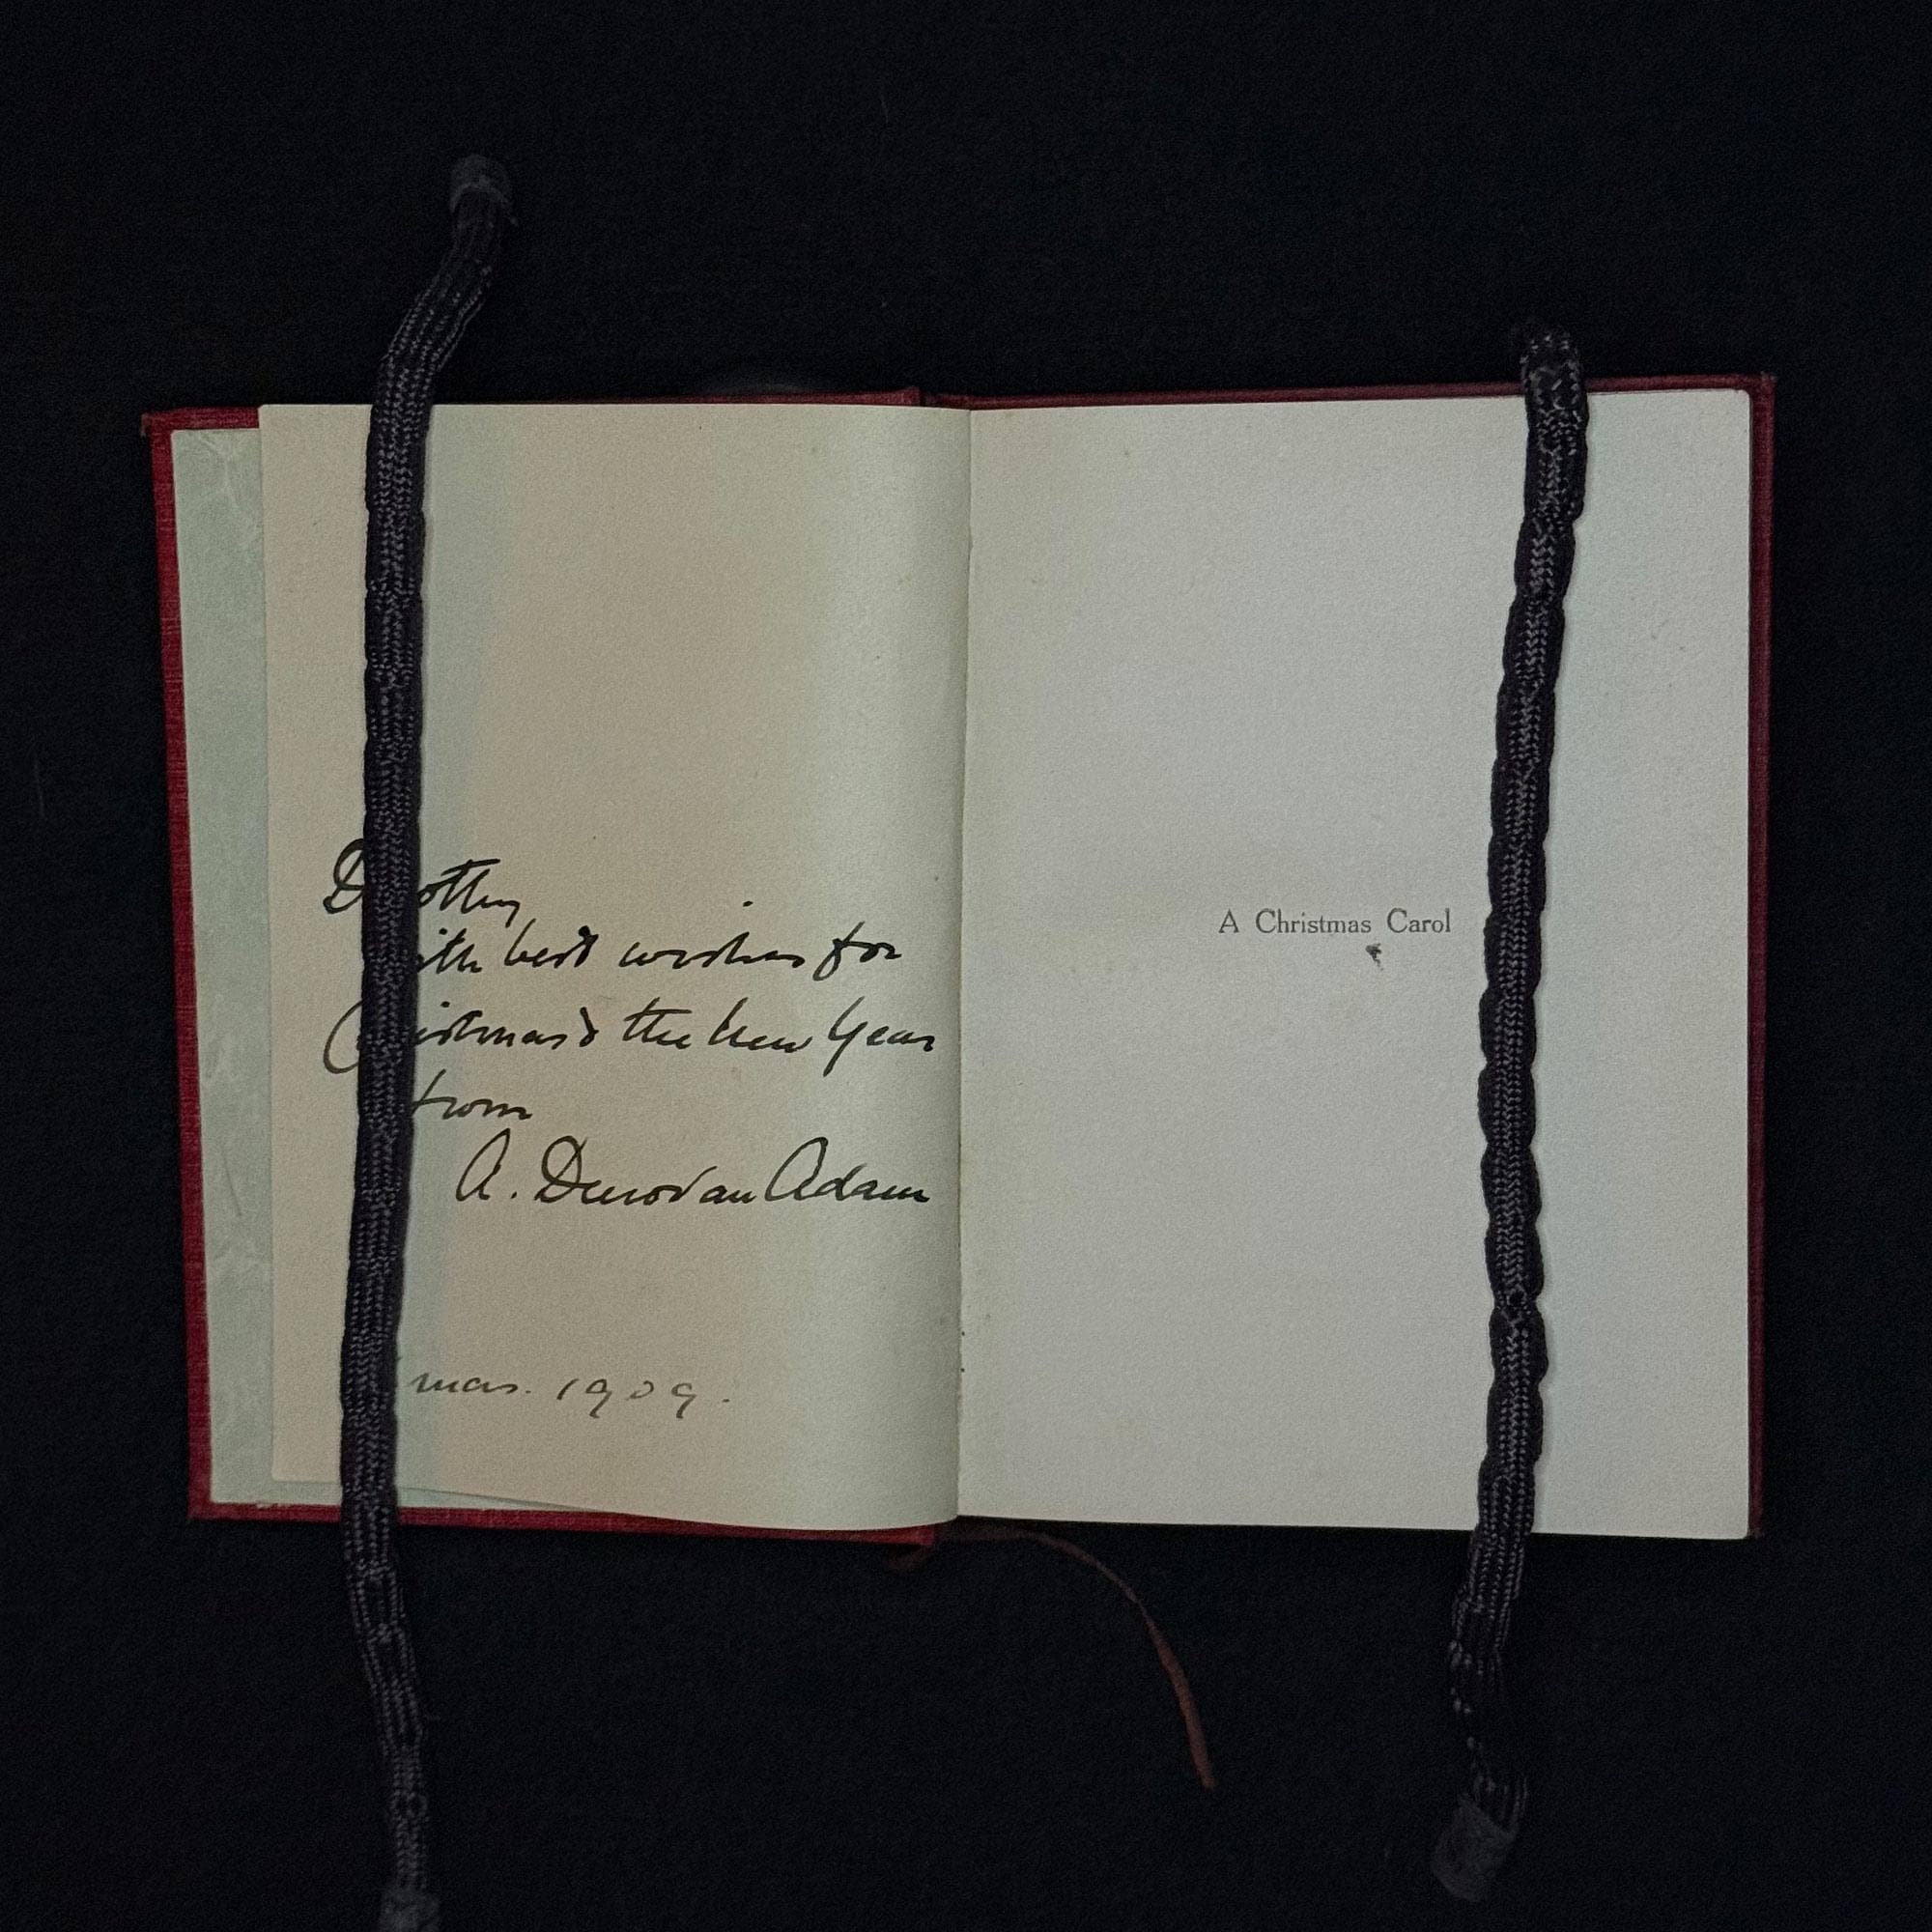 Dorothy
with best wishes for
Christmas & the New Year
from
A. Donovan Adam
mas. 1909.
A Christmas Carol